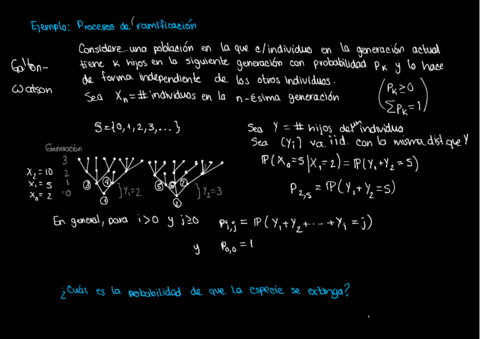 Ejemplo: Procesos de ramificación
Galton-
Watson
Considere una población en la que c/individuo en la generación actual
tiene k hijos en la siguiente generación con probabilidad Pk y lo hace
de forma independiente de los otros individuos.
(Pk≥0
ΣPk=1)
Sea Xn = # individuos en la n-ésima generación
S={0,1,2,3,...}
Sea Y = # hijos del individuo
Sea (Yi) va iid. con la misma dist que Y
Generación
3
X2=10 2
X1=5 1
X0=2 0
}Y1=2
}Y2=3
IP(X0=5|X1=2)=IP(Y1+Y2=5)
P2,5=IP(Y1+Y2=5)
En general, para i>0 y j≥0 Pi,j=IP(Y1+Y2+...+Yi=j)
y P0,0=1
¿Cuál es la probabilidad de que la especie se extinga?